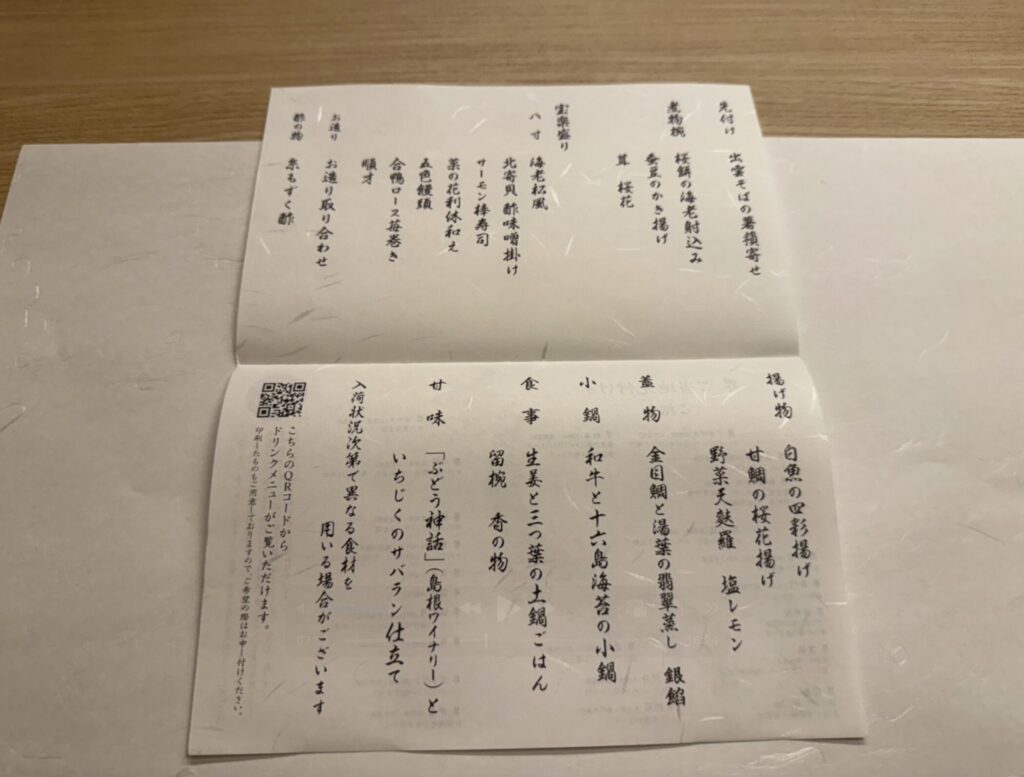 先付け
出雲そばの薯蕷寄せ
煮物椀
桜餅の海老射込み
蚕豆のかき揚げ
茸　桜花
宝楽盛り
八寸
海老松風
北寄貝　酢味噌掛け
サーモン棒寿司
菜の花利休和え
五色饅頭
合鴨ロース苺巻き
順才
お造り
お造り取り合わせ
酢の物
糸もずく酢
揚げ物
白魚の四彩揚げ
甘鯛の桜花揚げ
野菜天麩羅　塩レモン
蓋物
金目鯛と湯葉の翡翠蒸し　銀餡
小鍋
和牛と十六島海苔の小鍋
食事
生姜と三つ葉の土鍋ごはん
留椀　香の物
甘味
「ぶどう神話」（島根ワイナリー）と
いちじくのサバラン仕立て
入荷状況次第で異なる食材を
用いる場合がございます
こちらのQRコードから
ドリンクメニューがご覧いただけます。
印刷したものもご用意しておりますので、ご希望の際はお申し付けください。